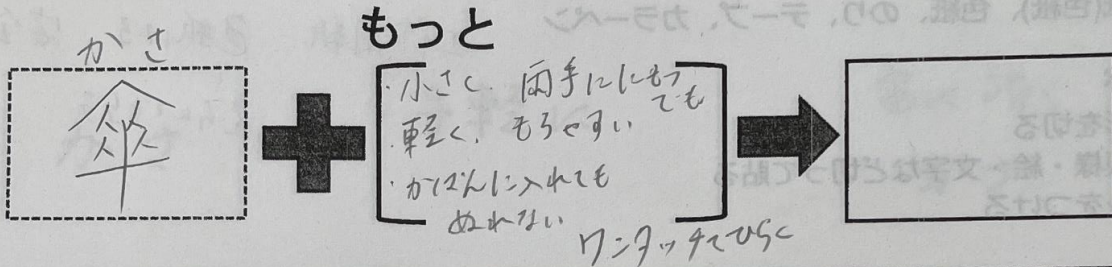 もっと
かさ
傘
・小さく、両手ににもつ
でも
・軽く、もちやすい
・かばんに入れても
ぬれない
ワンタッチでひらく